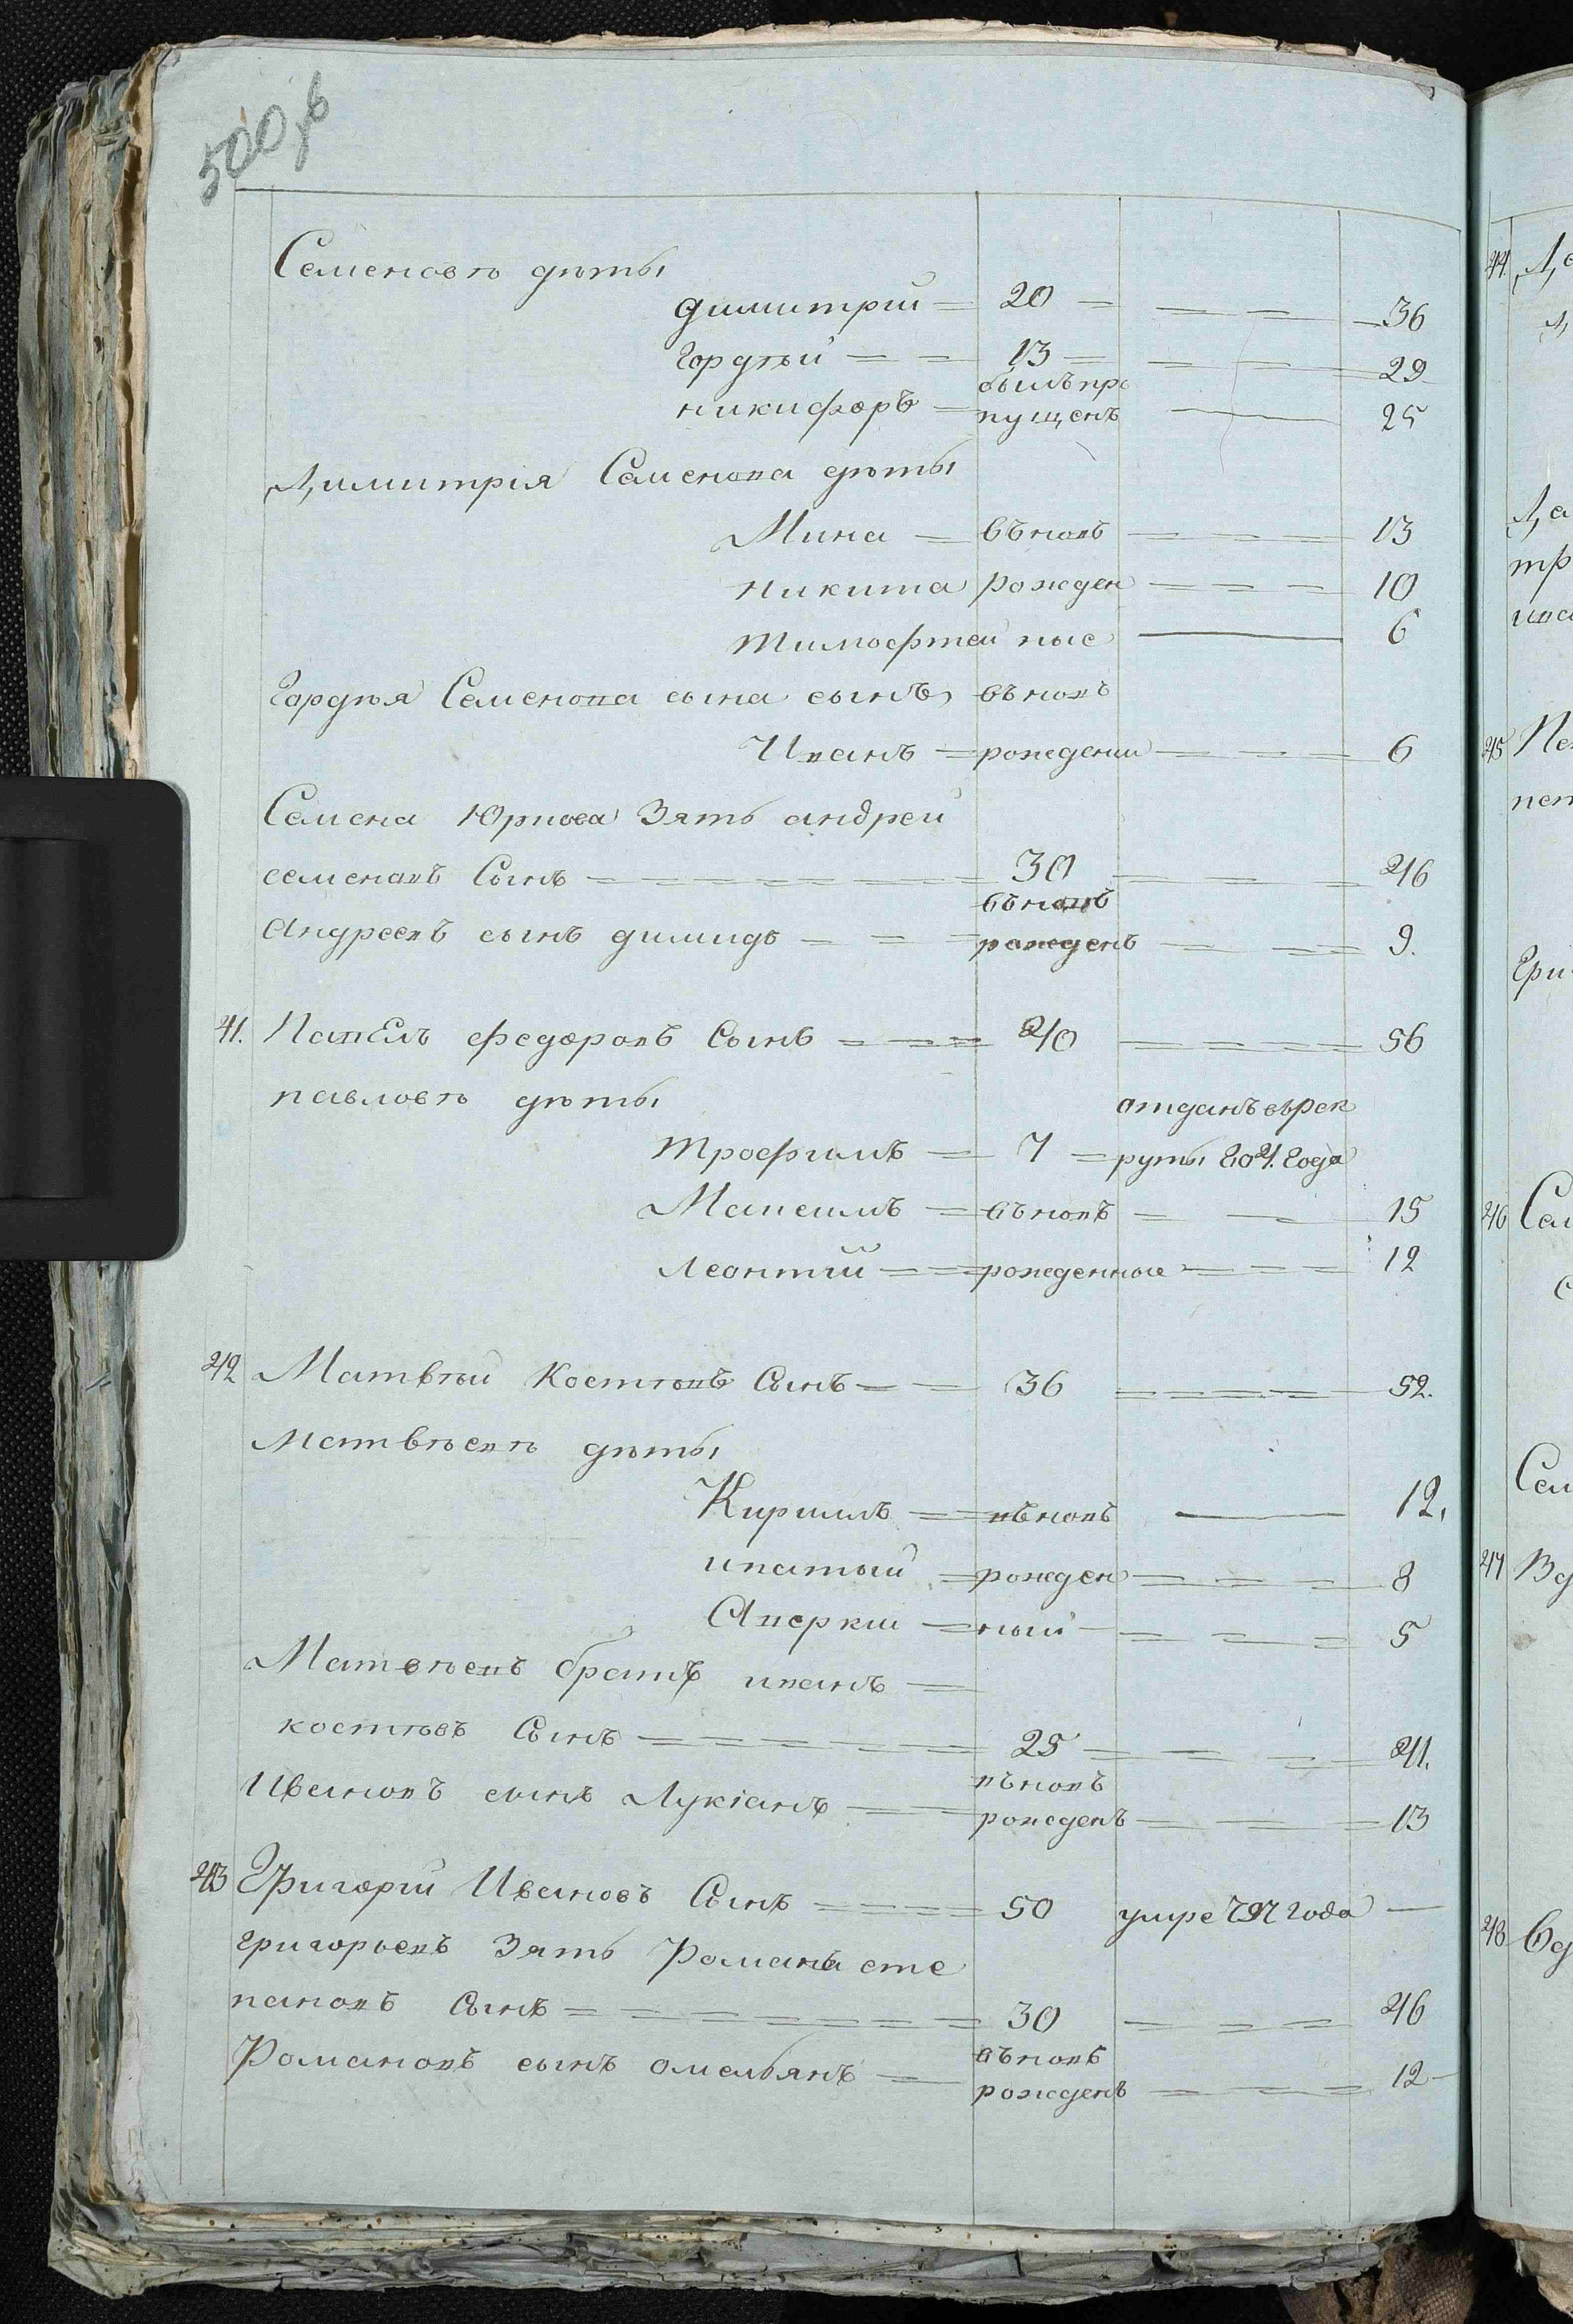 500 об
Семеновѣ дѣты
Димитрий = 20 = 36
Гордѣй = = 13 = 29
былъ про
никифоръ = пущенъ 25
Димитрія Семенова дѣты
Мина = въновь 13
Никита рожден 10
Тимофтей ные 6
Гордѣя Семенова сына сынъ въновь
Иванъ = рождении 6
Семена Юриева Зять андрей
семеновъ Сынъ 30 46
въновь
Андреевъ сынъ димидъ рожденъ 9.
41. Павелъ федоровъ Сынъ 40 56
павловѣ дѣты отданъ врек
Трофимъ = 7 = руты 804. Года
Максимъ = въновь 15
Леонтий = рожденные 12
42 Матвѣй Костювъ Сынъ 36 52.
Матвѣевѣ дѣты
Кирилъ = въновь 12.
ипатый = рожден 8
Аверкии = ный 5
Матвѣевъ братъ иванъ
костювъ Сынъ 25 41.
въновь
Ивановъ сынъ Лукіанъ рожденъ 13
43 Григорий Ивановъ Сынъ 50 умре 797 года
григорьевъ Зять Романъ сте
пановъ Сынъ 30 46
въновь
Романовъ сынъ омельянъ рожденъ 12
44
45
46
47
48